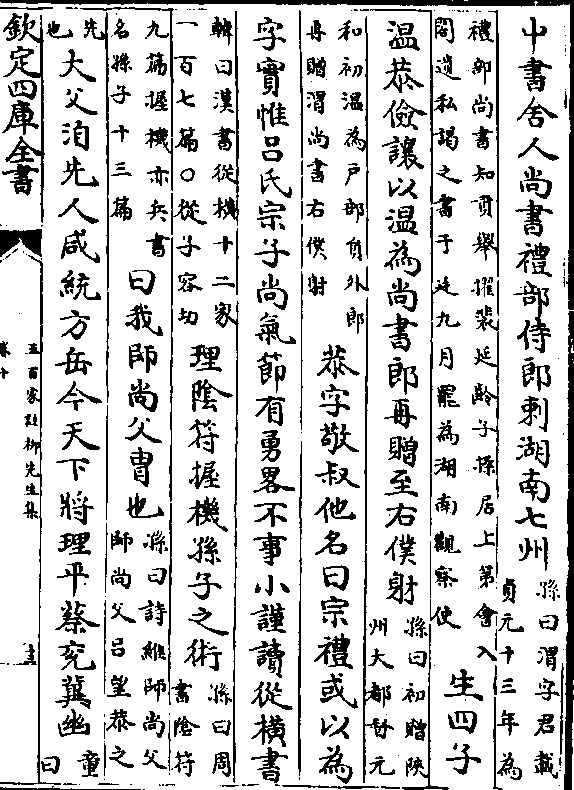 中書舍人尚書禮部侍郎刺湖南七州
孫曰渭字君載
貞元十三年為
禮部尚書知貢舉擢裴延齡子操居上第會入
閣遺私謁之書于廷九月罷為湖南觀察使
生四子
温恭儉讓以温為尚書郎再贈至右僕射
孫曰初贈陜
州大都督元
和初温為戸部員外郎
再贈渭尚書右僕射
恭字敬叔他名曰宗禮或以為
字實惟吕氏宗子尚氣節有勇畧不事小謹讀從橫書
韓曰漢書從機十二家
一百七篇○從子容切
理隂符握機孫子之術
孫曰周
書隂符
九篇握機亦兵書
名孫子十三篇
曰我師尚父胄也
孫曰詩維師尚父
師尚父吕望恭之
先
也
大父洎先人咸統方岳今天下將理平蔡兖冀幽
童
曰
欽定四庫全書
五百家註柳先生集
卷十